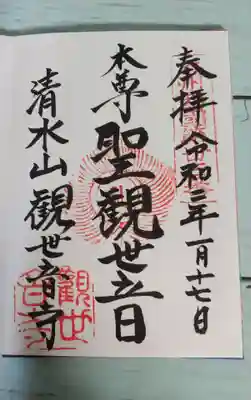 奉拝 令和三年一月十七日
本尊 聖観世音
清水山観世音寺